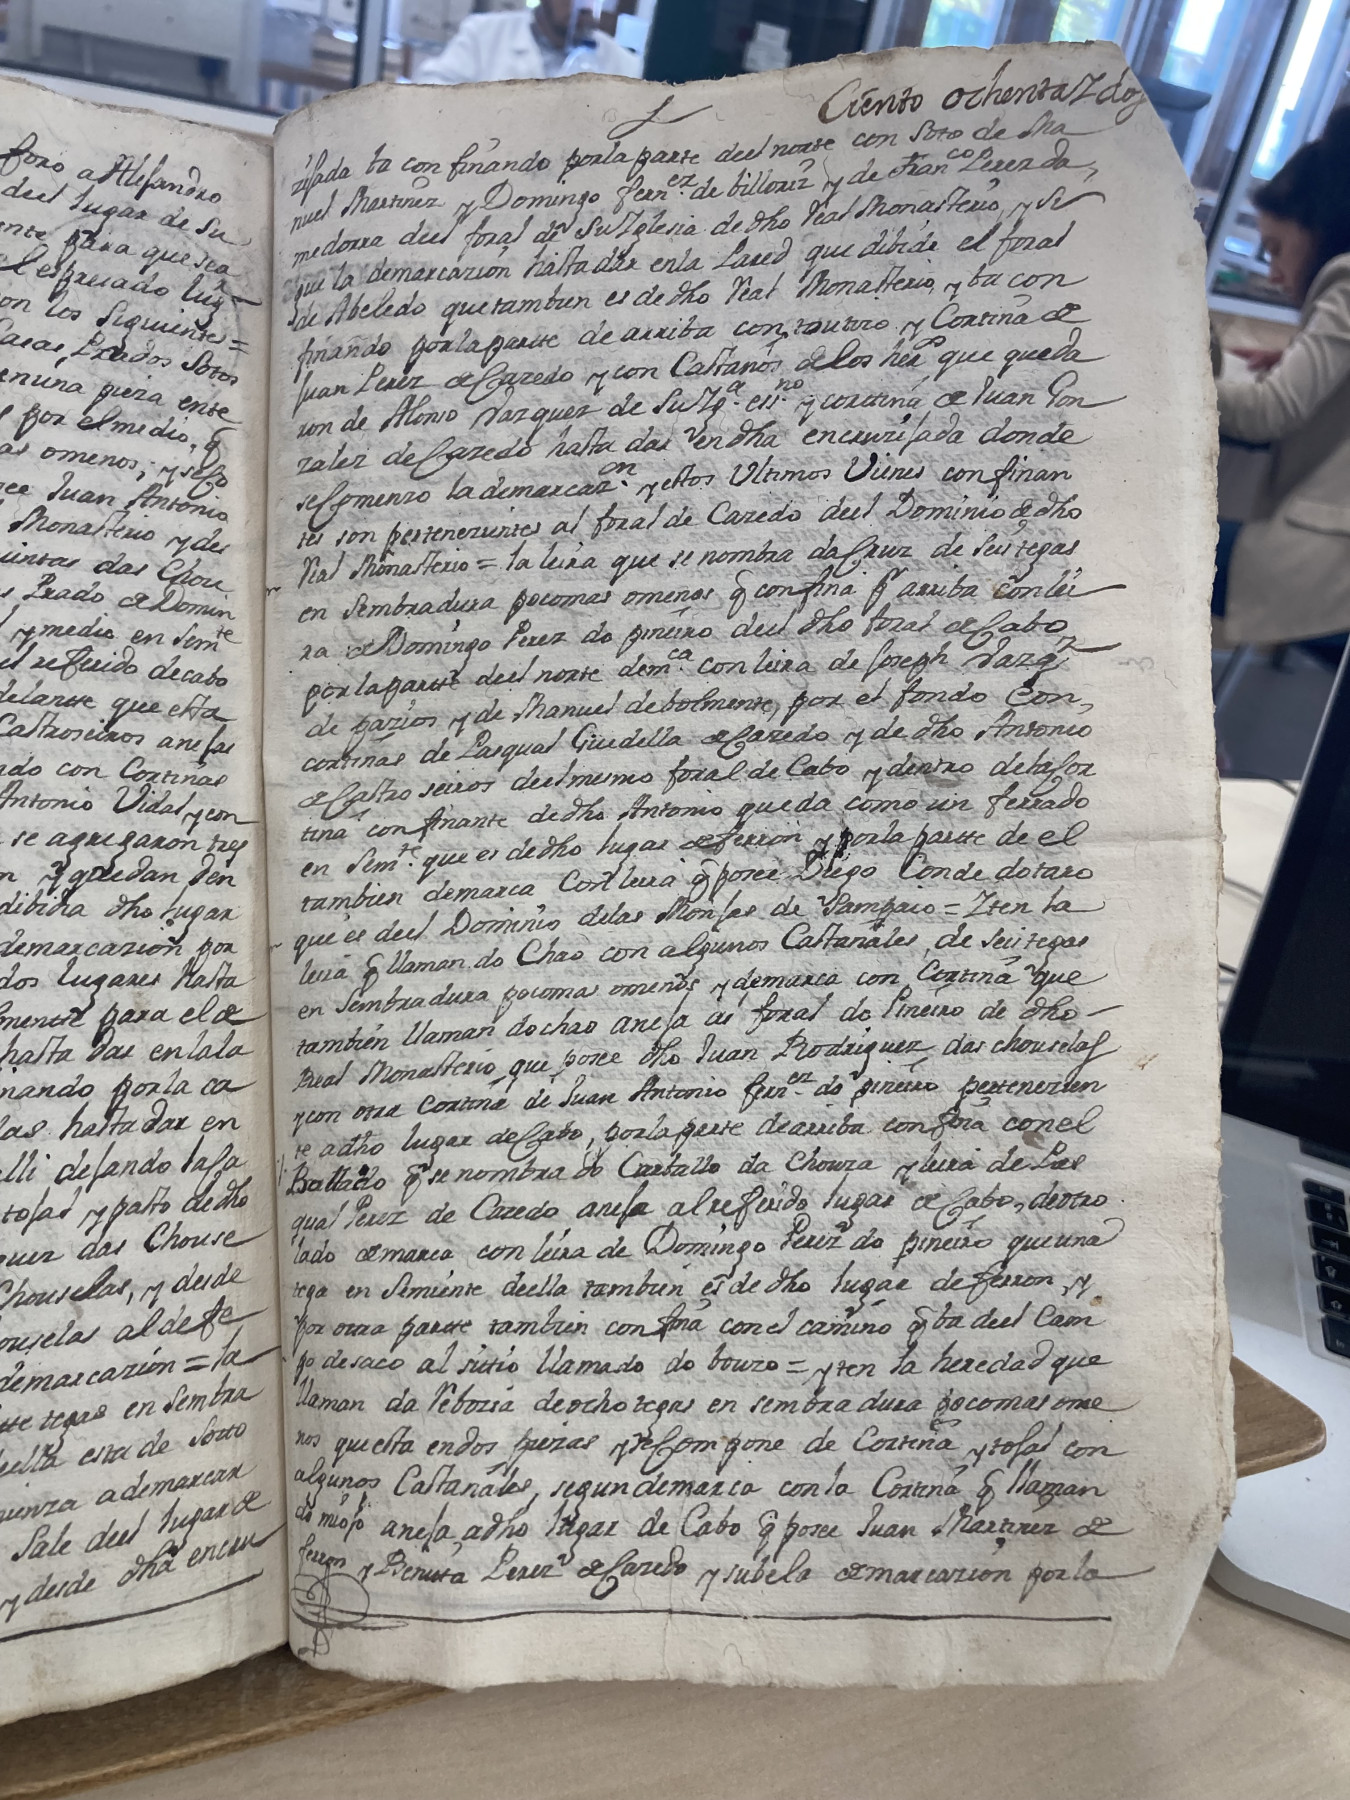 foro a Alejandro
deel lugar de Su
ente para que sea
el espresado lug
con los siguientes =
Casas, Prados Sotos
en una pieza ente
s por el medio, q̃
as omenos, y se Co
see Juan Antonio
l Monasterio y des
quintas das Chou
s Prado de Domin
y medio en Semte
el referido de cabo
delante que esta
Castroseiros anejas
ndo con Cortiñas
Antonio Vidal y con
se agregaron tres
n y quedan den
dibidia dho lugar
demarcazion por
dos lugares hasta
lmente para el de
hasta dar en la la
nando por la ca
las hasta dar en
alli dejando la ja
tojas y pasto de dho
guez das Chouse
Chouselas, y desde
ouselas al de fe
demarcazion = la
tte tegas en Sembra
della esta de Sotto
mienza a demarcar
Sale deel lugar de
y desde dha encru
Ciento ochenta Z dos
zijada ba confinando por la parte deel norte con Soto de Ma
nuel Martinez y Domingo Fernez de billoriz y de Franco Perez da
medorra deel foral de Su Iglesia de dho Real Monasterio, y si
gue la demarcazion hasta dar en la Pared que dibide el foral
de Abeledo que tambien es de dho Real Monasterio, y ba con
finando por la parte de arriba con toutizo y Cortiña de
Juan Perez de Cazedo y con Castaños de los hers que queda
ron de Alonso Vazquez de Su Iga essno y cortiña de Juan Gon
zalez de Cazedo hasta dar en dha encruzijada donde
se Comenzo la demarcazon y estos Ultimos Vienes confinan
tes son pertenezientes al foral de Cazedo deel Dominio de dho
Real Monasterio = la leira que se nombra da Cruz de seis tegas
en Sembradura poco mas omenos q̃ confina pr arriba con lei
ra de Domingo Perez do piñeiro deel dho foral de Cabo
por la parte deel norte demca con leira de Joseph Vazqz
de pazios y de Manuel de bolmente, por el fondo Con
cortiñas de Pasqual Giudella de Cazedo y de dho Antonio
de Castro seiros deel mesmo foral de Cabo y dentro de la Cor
tiña confinante de dho Antonio queda como un ferrado
en Semte que es de dho lugar de ferron y por la parte de el
tambien demarca con leira q̃ posee Diego Conde dotaro
que es deel Dominio de las Monjas de Sampaio = Iten la
leira q̃ llaman do Chao con algunos Castañales, de seis tegas
en Sembradura poco mas omenos y demarca con Cortiña que
tambien llaman do chao aneja as foral do Piñeiro de dho
Real Monasterio que posee dho Juan Rodriguez das chouselas
y con otra Cortiña de Juan Antonio fernez do piñeiro pertenezien
te a dho lugar de Cabo, por la parte de arriba confina con el
Ballado q̃ se nombra do Carballo da Chouza y leira de Pas
qual Perez de Cazedo aneja al referido lugar de Cabo, deotro
lado demarca con leira de Domingo Perez do piñeiro que una
tega en Semiente deella tambien es de dho lugar de ferron, y
por otra parte tambien confina con el camino q̃ ba deel Cam
po de saco al sittio llamado do bouzo = yten la heredad que
llaman da Reboria de ocho tegas en sembradura poco mas ome
nos que esta en dos piezas y se Compone de Cortiña y tojas con
algunos Castañales, segun demarca con la Cortiña q̃ llaman
aneja a dho lugar de Cabo q̃ posee Juan Martinez de
ferron y Benita Perez de Cazedo y sube la demarcazion por la